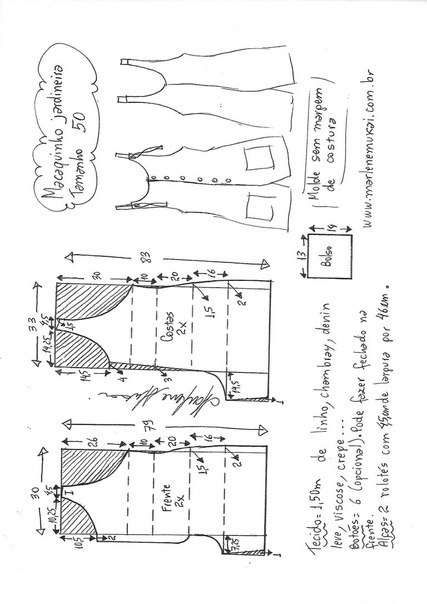 Macaquinho jardineira
Tamanho 50
Molde sem margem
de costura
www.marlenemukai.com.br
83
30
10
20
16
33
4,5
1,5
14,25
14,5
4
3
1,5
2
19,5
1
Costas
2x
13
14
Bolso
79
26
10
20
16
30
4,5
1
10,25
10,5
2
1,5
2
7,25
1
Frente
2x
Tecido= 1,50m de linho, chambray, denin
leve, viscose, crepe...
Botões= 6 (opcional). Pode fazer fechado na
frente.
Alças= 2 rolotês com de largura por 46cm.